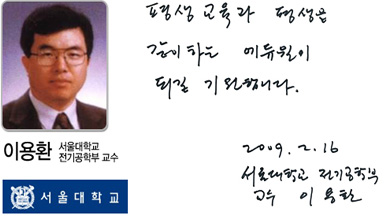 평생교육과 평생을
같이하는 에듀윌이
되길 기원합니다.
2009. 2. 16
서울대학교 전기공학부
교수 이용환
이용환 서울대학교
전기공학부 교수
서울대학교